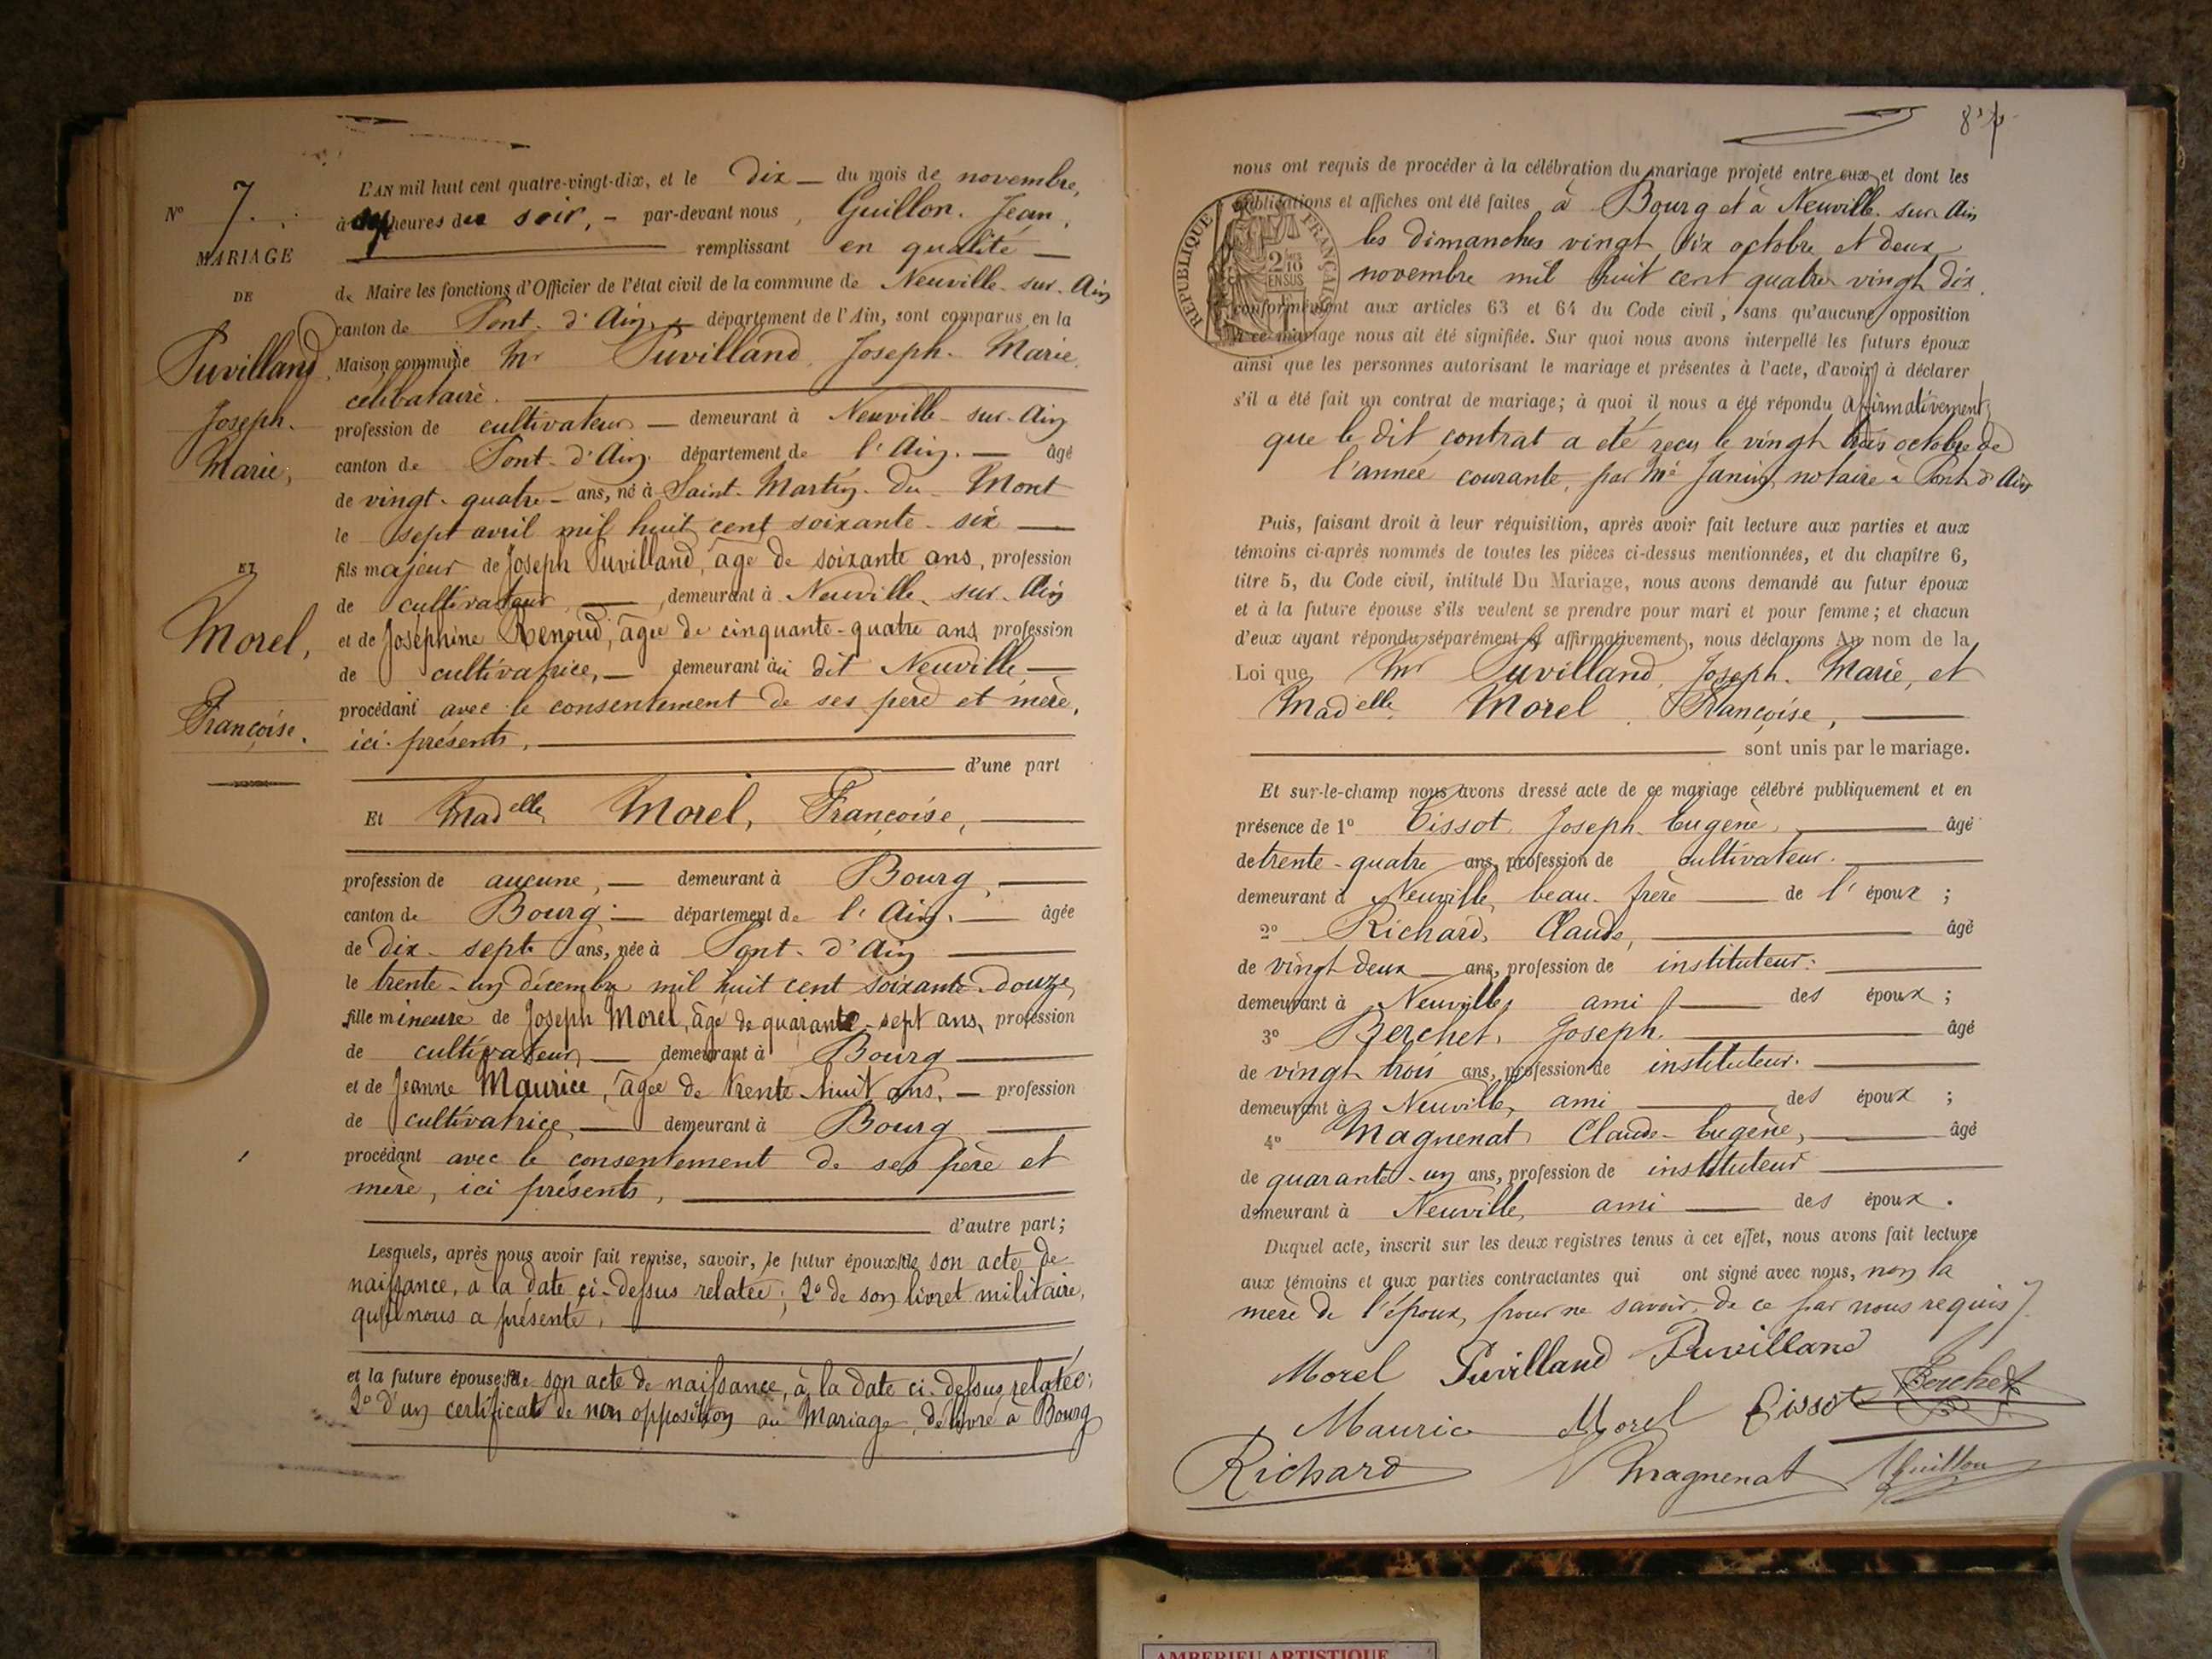 N° 7.
MARIAGE
DE
Puvilland
Joseph.
Marie,
ET
Morel,
Françoise.
L'AN mil huit cent quatre-vingt-dix, et le dix — du mois de novembre,
à heures du soir, - par-devant nous, Guillon. Jean,
remplissant en qualité —
de Maire les fonctions d'Officier de l'état civil de la commune de Neuville-sur-Ain
canton de Pont-d'Ain, — département de l'Ain, sont comparus en la
Maison commune Mr Puvilland, Joseph-Marie,
célibataire.
profession de cultivateur — demeurant à Neuville-sur-Ain
canton de Pont-d'Ain. département de l'Ain. — âgé
de vingt-quatre - ans, né à Saint-Martin-du-Mont
le sept avril mil huit cent soixante-six —
fils majeur de Joseph Puvilland, âgé de soixante ans, profession
de cultivateur, — demeurant à Neuville-sur-Ain
et de Joséphine Renoud, âgée de cinquante-quatre ans, profession
de cultivatrice, — demeurant au dit Neuville, —
procédant avec le consentement de ses père et mère,
ici présents,
d'une part
Et Madelle Morel, Françoise,
profession de aucune, — demeurant à Bourg,
canton de Bourg — département de l'Ain. — âgée
de dix-sept ans, née à Pont-d'Ain
le trente-un décembre mil huit cent soixante-douze,
fille mineure de Joseph Morel, âgé de quarante-sept ans, profession
de cultivateur, — demeurant à Bourg
et de Jeanne Maurice, âgée de trente-huit ans, — profession
de cultivatrice, — demeurant à Bourg
procédant avec le consentement de ses père et
mère, ici présents,
d'autre part;
Lesquels, après nous avoir fait remise, savoir, le futur époux 1° de son acte de
naissance, à la date ci-dessus relatée; 2° de son livret militaire,
qu'il nous a présenté,
et la future épouse 1° de son acte de naissance, à la date ci-dessus relatée;
2° d'un certificat de non opposition au Mariage, délivré à Bourg
nous ont requis de procéder à la célébration du mariage projeté entre eux et dont les
publications et affiches ont été faites à Bourg et à Neuville-sur-Ain
les dimanches vingt six octobre et deux
novembre mil huit cent quatre vingt dix.
conformément aux articles 63 et 64 du Code civil, sans qu'aucune opposition
à ce mariage nous ait été signifiée. Sur quoi nous avons interpellé les futurs époux
ainsi que les personnes autorisant le mariage et présentes à l'acte, d'avoir à déclarer
s'il a été fait un contrat de mariage; à quoi il nous a été répondu affirmativement;
que le dit contrat a été reçu le vingt trois octobre de
l'année courante, par Mé Janin, notaire à Pont d'Ain
Puis, faisant droit à leur réquisition, après avoir fait lecture aux parties et aux
témoins ci-après nommés de toutes les pièces ci-dessus mentionnées, et du chapitre 6,
titre 5, du Code civil, intitulé Du Mariage, nous avons demandé au futur époux
et à la future épouse s'ils veulent se prendre pour mari et pour femme; et chacun
d'eux ayant répondu séparément et affirmativement, nous déclarons Au nom de la
Loi que Mr Puvilland, Joseph-Marie, et
Madelle Morel, Françoise,
sont unis par le mariage.
Et sur-le-champ nous avons dressé acte de ce mariage célébré publiquement et en
présence de 1° Tissot, Joseph-Eugène, âgé
de trente-quatre ans, profession de cultivateur.
demeurant à Neuville, beau-frère — de l'époux;
2° Richard, Claude, âgé
de vingt deux — ans, profession de instituteur.
demeurant à Neuville, ami — des époux;
3° Berchet, Joseph. âgé
de vingt trois ans, profession de instituteur.
demeurant à Neuville, ami — des époux;
4° Magnenat Claude-Eugène, âgé
de quarante-un ans, profession de instituteur
demeurant à Neuville, ami — des époux.
Duquel acte, inscrit sur les deux registres tenus à cet effet, nous avons fait lecture
aux témoins et aux parties contractantes qui ont signé avec nous, non la
mère de l'époux, pour ne savoir, de ce par nous requis
Morel Puvilland Puvilland
Berchet
Maurice Morel Tissot
Richard Magnenat Guillon
RÉPUBLIQUE FRANÇAISE
2/10
EN SUS
AMBERIEU ARTISTIQUE